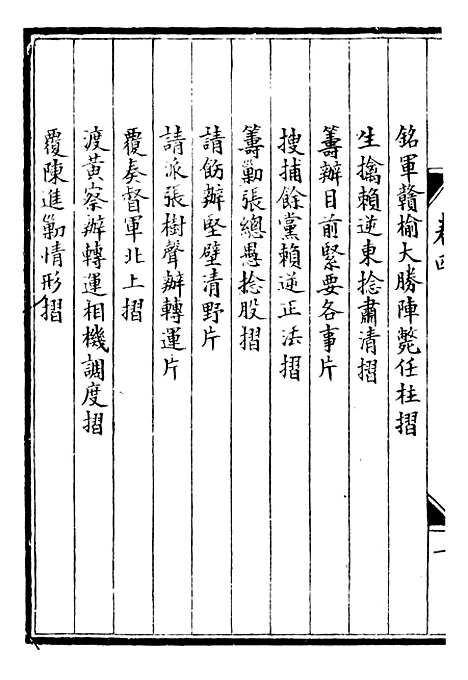 卷四
一
銘軍贛榆大勝陣斃任柱摺
生擒賴逆東捻肅清摺
籌辦目前緊要各事片
搜捕餘黨賴逆正法摺
籌勦張總愚捻股摺
請飭辦堅壁清野片
請派張樹聲辦轉運片
覆奏督軍北上摺
渡黃察辦轉運相機調度摺
覆陳進勦情形摺